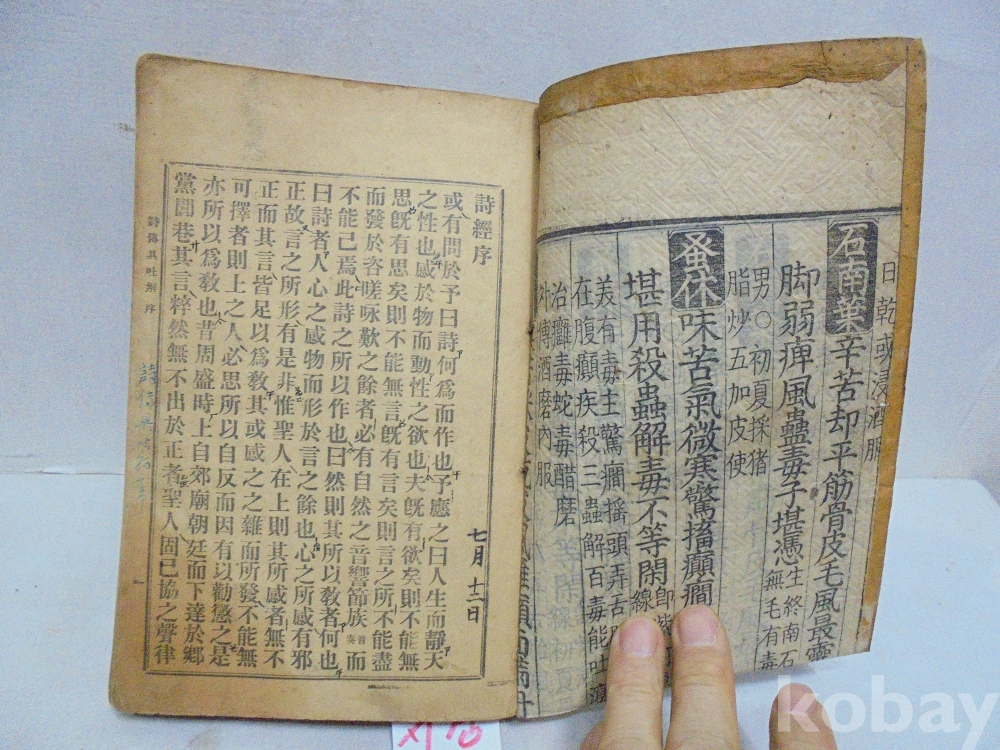 日乾或浸酒服
石南葉辛苦却平筋骨皮毛風最靈
脚弱痺風蠱毒子堪憑生終南石
無毛有毒
男○初夏採猪
脂炒五加皮使
蚤休味苦氣微寒驚搐癲癎
堪用殺蟲解毒不等閑
線
美有毒主驚癎搖頭弄舌
在腹癲疾殺三蟲解百毒能吐瀉
治癰毒蛇毒醋磨
外傅酒磨內服
詩經序
七月十二日
或有問於予曰詩何爲而作也予應之曰人生而靜天
之性也感於物而動性之欲也夫旣有欲矣則不能無
思旣有思矣則不能無言旣有言矣則言之所不能盡
而發於咨嗟咏歎之餘者必有自然之音響節族音奏而
不能已焉此詩之所以作也曰然則其所以敎者何也
曰詩者人心之感物而形於言之餘也心之所感有邪
正故言之所形有是非惟聖人在上則其所感者無不
正而其言皆足以爲敎其或感之之雜而所發不能無
可擇者則上之人必思所以自反而因有以勸懲之是
亦所以爲敎也昔周盛時上自郊廟朝廷而下達於鄕
黨閭巷其言粹然無不出於正者聖人固已協之聲律
詩傳具吐解 序 一
kobay